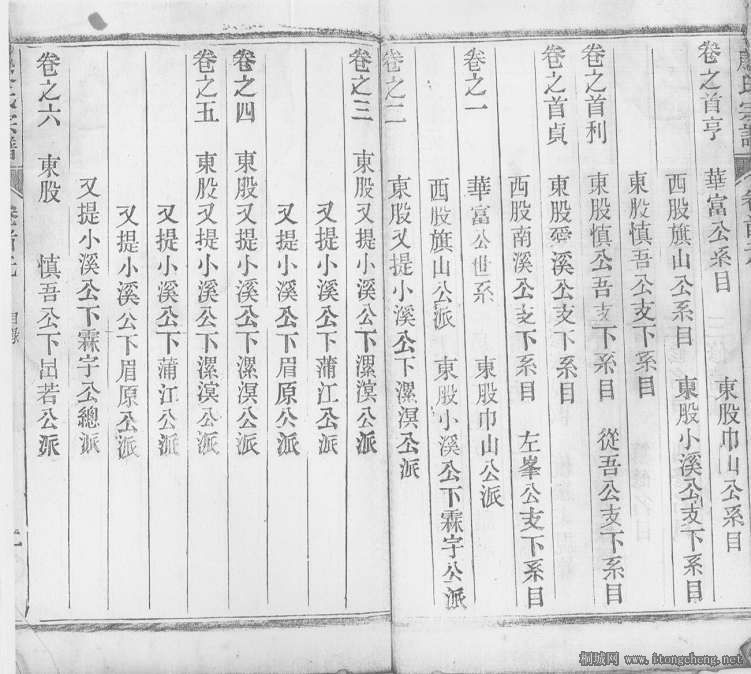 氏宗譜
卷之首亨 華富公系目 東股巾山公系目
西股旗山公系目 東股小溪公支下系目
東股慎吾公支下系目
卷之首利 東股慎公吾支下系目 從吾公支下系目
卷之首貞 東股溪公支下系目
西股南溪公支下系目 左峯公支下系目
卷之一 華富公世系 東股巾山公派
西股旗山公派 東股小溪公下霖宇公派
卷之二 東股又提小溪公下漯溟公派
卷之三 東股又提小溪公下漯溟公派
又提小溪公下蒲江公派
又提小溪公下眉原公派
卷之四 東股又提小溪公下漯溟公派
卷之五 東股又提小溪公下漯溟公派
又提小溪公下蒲江公派
又提小溪公下眉原公派
又提小溪公下霖宇公總派
卷之六 東股 慎吾公下岊若公派
氏宗譜 卷首元 目錄
桐城网 www.itongcheng.net